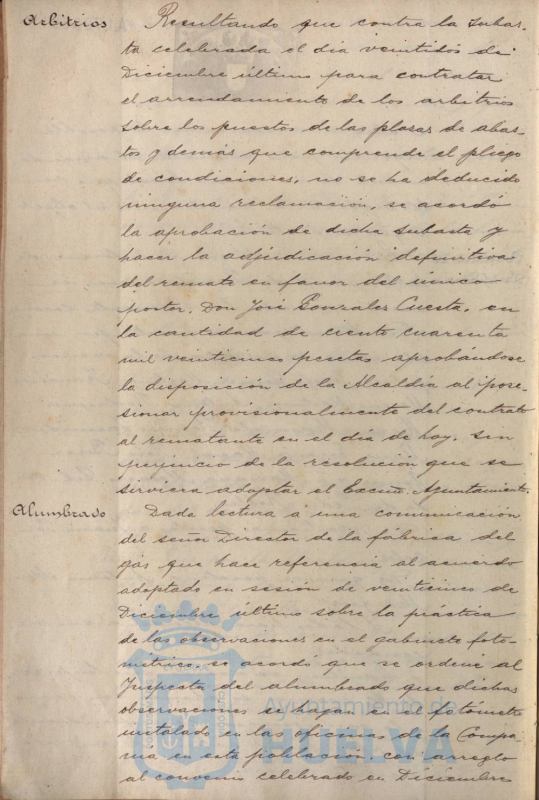 Arbitrios
Resultando que contra la subas-
ta celebrada el dia veintidos de
Diciembre último para contratar
el arrendamiento de los arbitrios
sobre los puestos de las plazas de abas-
tos y demás que comprende el pliego
de condiciones, no se ha deducido
ninguna reclamación, se acordó
la aprobación de dicha subasta y
hacer la adjudicación definitiva
del remate en favor del único
postor, Don José Gonzalez Cuesta, en
la cantidad de ciento cuarenta
mil veinticinco pesetas aprobándose
la disposición de la Alcaldía al pose-
sionar provisionalmente del contrato
al rematante en el día de hoy, sin
perjuicio de la resolución que se
sirviera adoptar el Excmo. Ayuntamiento.
Alumbrado
Dada lectura á una comunicación
del señor Director de la fábrica del
gas que hace referencia al acuerdo
adoptado en sesión de veinticinco de
Diciembre último sobre la práctica
de las observaciones en el gabinete foto-
métrico, se acordó que se ordene al
Inspector del alumbrado que dichas
observaciones se hagan en el fotómetro
instalado en las oficinas de la Compa-
ñia en esta población, con arreglo
al convenio celebrado en Diciembre
Ayuntamiento de
HUELVA